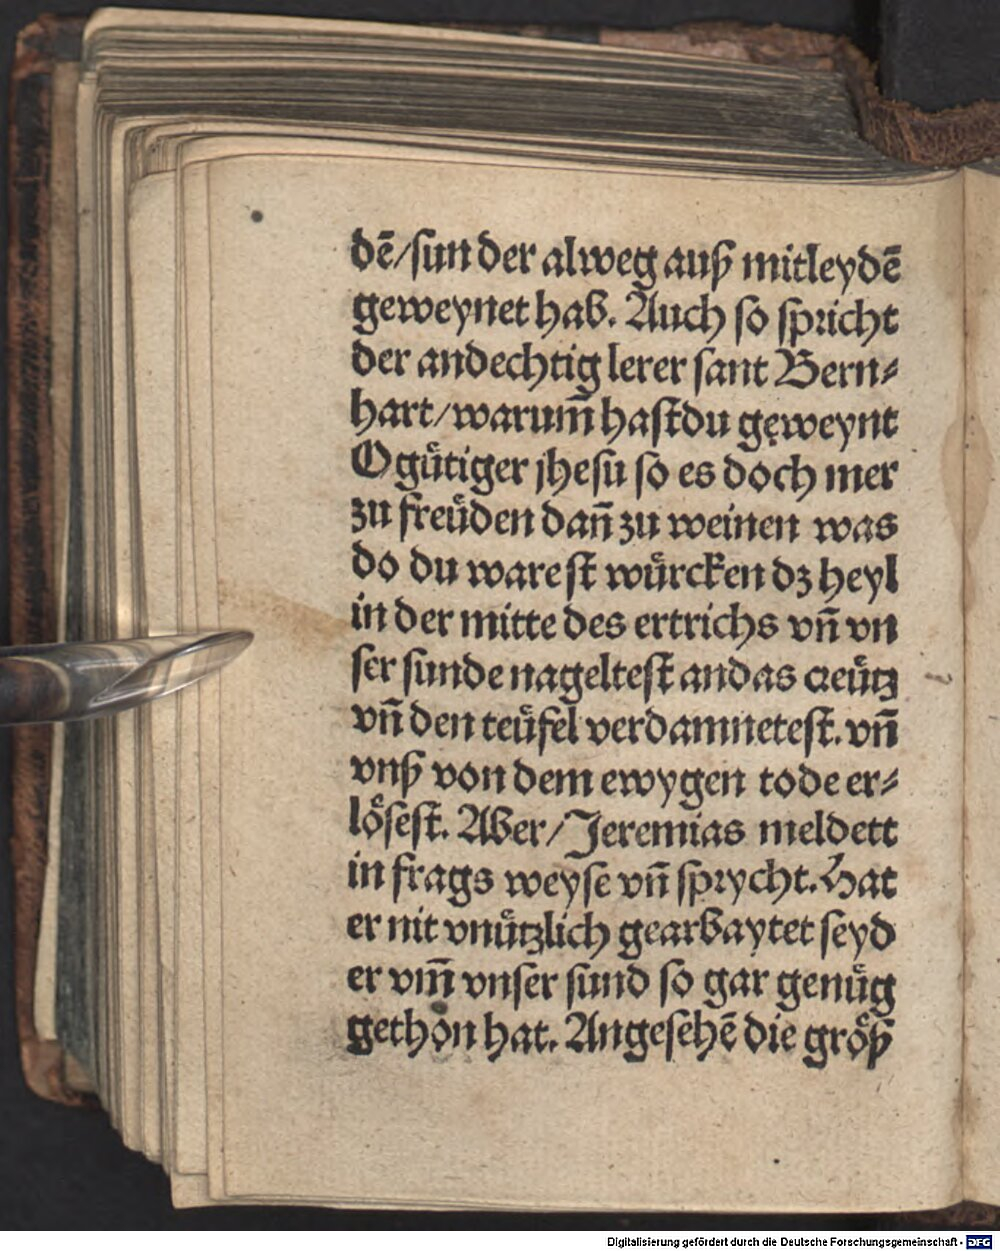 dē/sun der alweg auß mitleydē
geweynet hab. Auch so spricht
der andechtig lerer sant Bern⸗
hart/warum̄ hastdu geweynt
O gütiger jhesu so es doch mer
zu freüden dan̄ zu weinen was
do du warest würcken dz heyl
in der mitte des ertrichs vn̄ vn
ser sunde nageltest an das creütz
vn̄ den teüfel verdamnetest. vn̄
vnß von dem ewygen tode er⸗
lösest. Aber/Jeremias meldett
in frags weyse vn̄ sprycht. Hat
er nit vnützlich gearbaytet seyd
er vm̄ vnser sund so gar genüg
gethon hat. Angesehē die größ
Digitalisierung gefördert durch die Deutsche Forschungsgemeinschaft - DFG